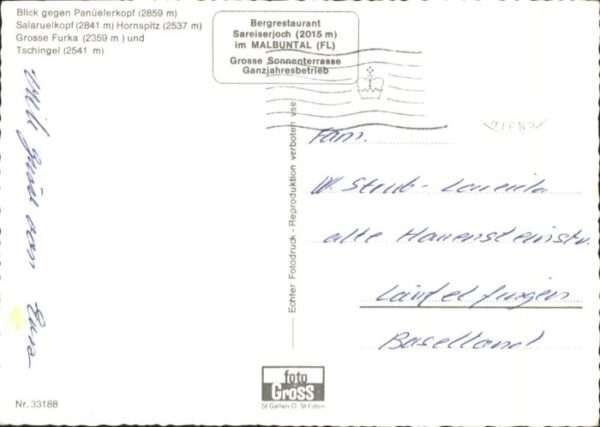 Blick gegen Panüelerkopf (2859 m)
Salaruelkopf (2841 m) Hornspitz (2537 m)
Grosse Furka (2359 m) und
Tschingel (2541 m)
Bergrestaurant
Sareiserjoch (2015 m)
im MALBUNTAL (FL)
Grosse Sonnenterrasse
Ganzjahresbetrieb
Echter Fotodruck - Reproduktion verboten
Fam.
W. Strub-
alte Hauensteinstr.
Läufelfingen
Baselland
foto
Gross
St Gallen
Nr. 33188